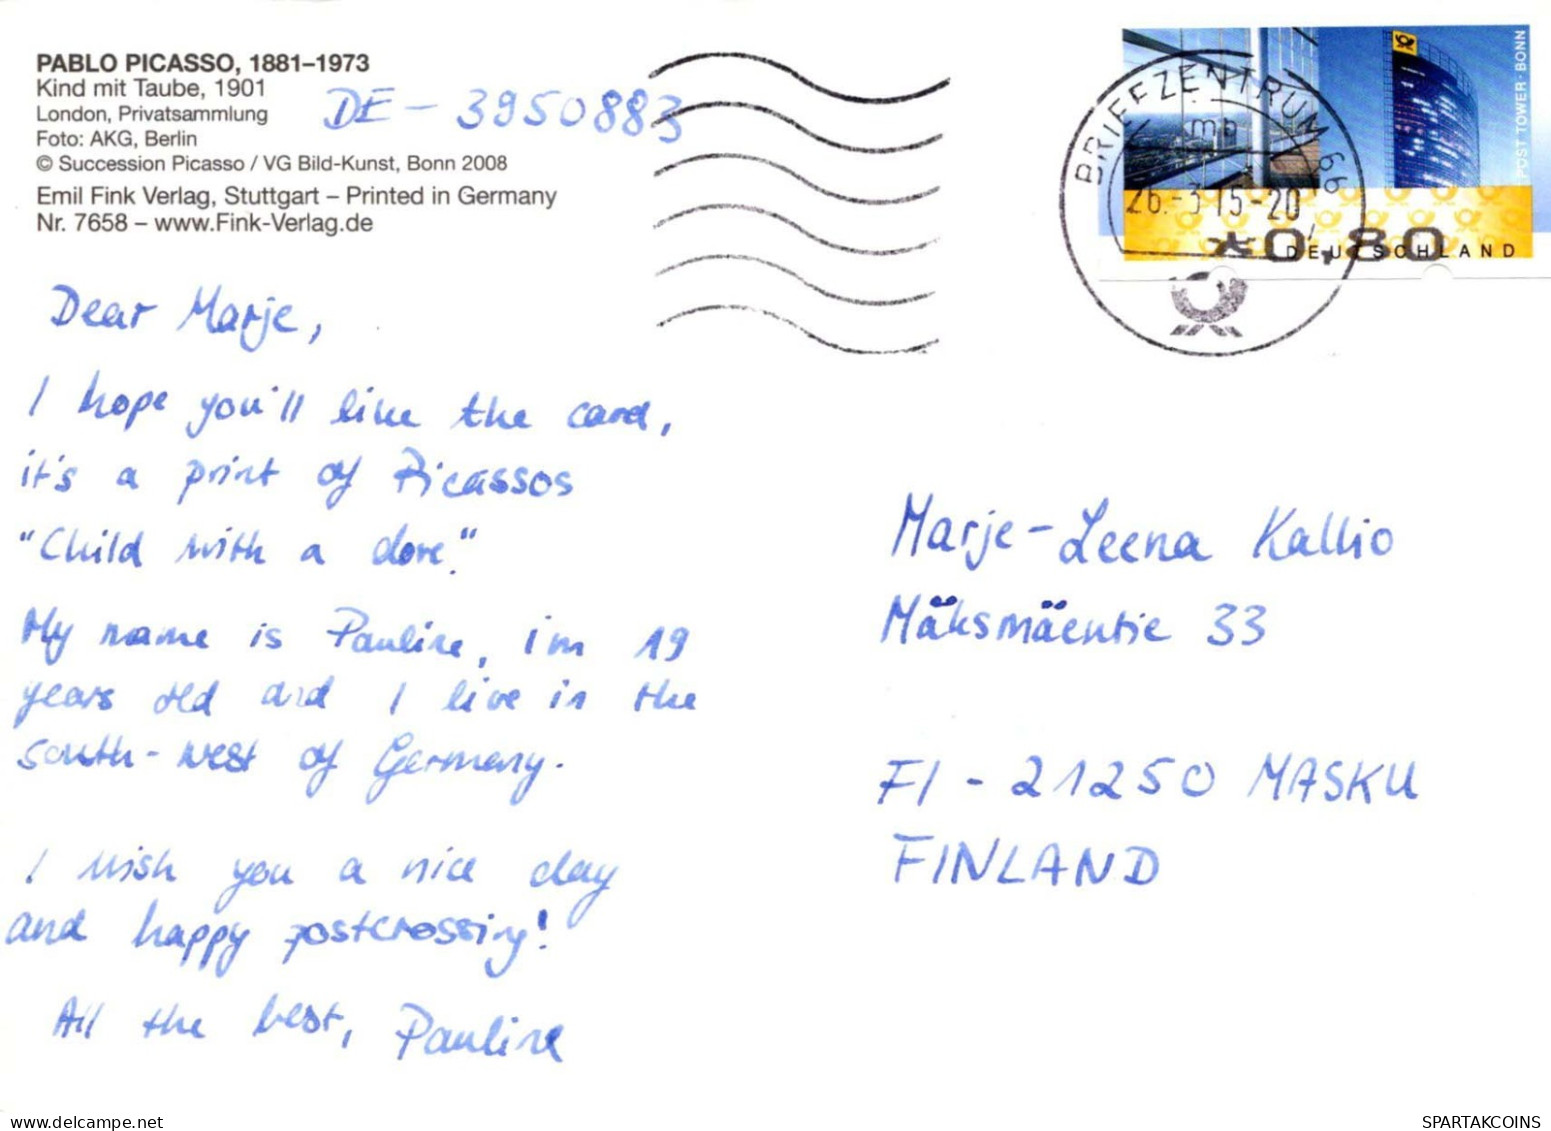 PABLO PICASSO, 1881–1973
Kind mit Taube, 1901
London, Privatsammlung
Foto: AKG, Berlin
© Succession Picasso / VG Bild-Kunst, Bonn 2008
Emil Fink Verlag, Stuttgart – Printed in Germany
Nr. 7658 – www.Fink-Verlag.de
DE - 3950883
BRIEFZENTRUM 66
mb
26.-3.15-20
*0,80
DEUTSCHLAND
POST TOWER · BONN
Dear Marje,
I hope you'll like the card,
it's a print of Picassos
"Child with a dove."
My name is Pauline, i'm 19
years old and I live in the
south-west of Germany.
I wish you a nice day
and happy postcrossing!
All the best, Pauline
Marje-Leena Kallio
Mäksmäentie 33
FI - 21250 MASKU
FINLAND
www.delcampe.net
SPARTAKCOINS